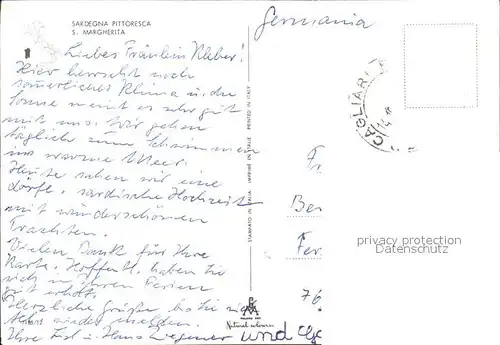 SARDEGNA PITTORESCA
S. MARGHERITA
Germania
Liebes Fräulein Kleber!
Hier herrscht noch
sommerliches Klima u. die
Sonne meint es sehr gut
mit uns. Wir gehen
täglich zum Schwimmen
ins warme Meer.
Heute sahen wir eine
dörfl. sardische Hochzeit
mit wunderschönen
Trachten.
Vielen Dank für Ihre
Karte. Hoffentl. haben Sie
sich in Ihren Ferien
gut erholt.
Herzliche Grüße bis Sie
wieder
Ihre u. Hans und
STAMPATO IN ITALIA IMPRIMÉ EN ITALIE PRINTED IN ITALY
CAGLIARI
Fr
Ber
Fer
76
privacy protection
Datenschutz
Natural colours